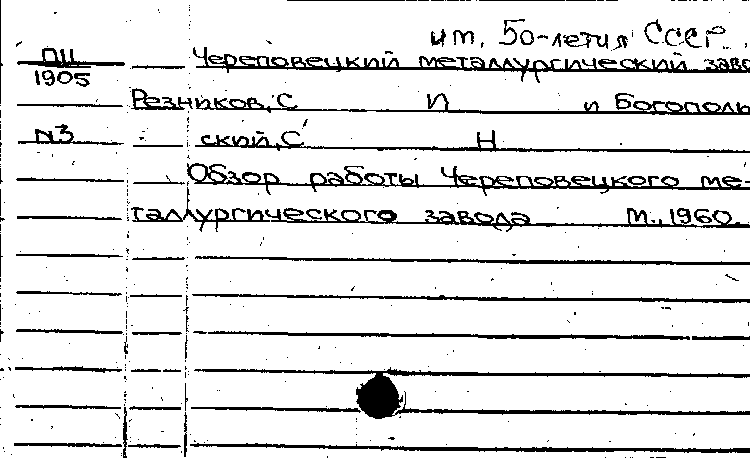 им. 50-летия СССР.
ПЦ Череповецкий металлургический заво
1905
Резников, С И и Богополь
N3 ский, С Н
Обзор работы Череповецкого ме-
таллургического завода М., 1960.